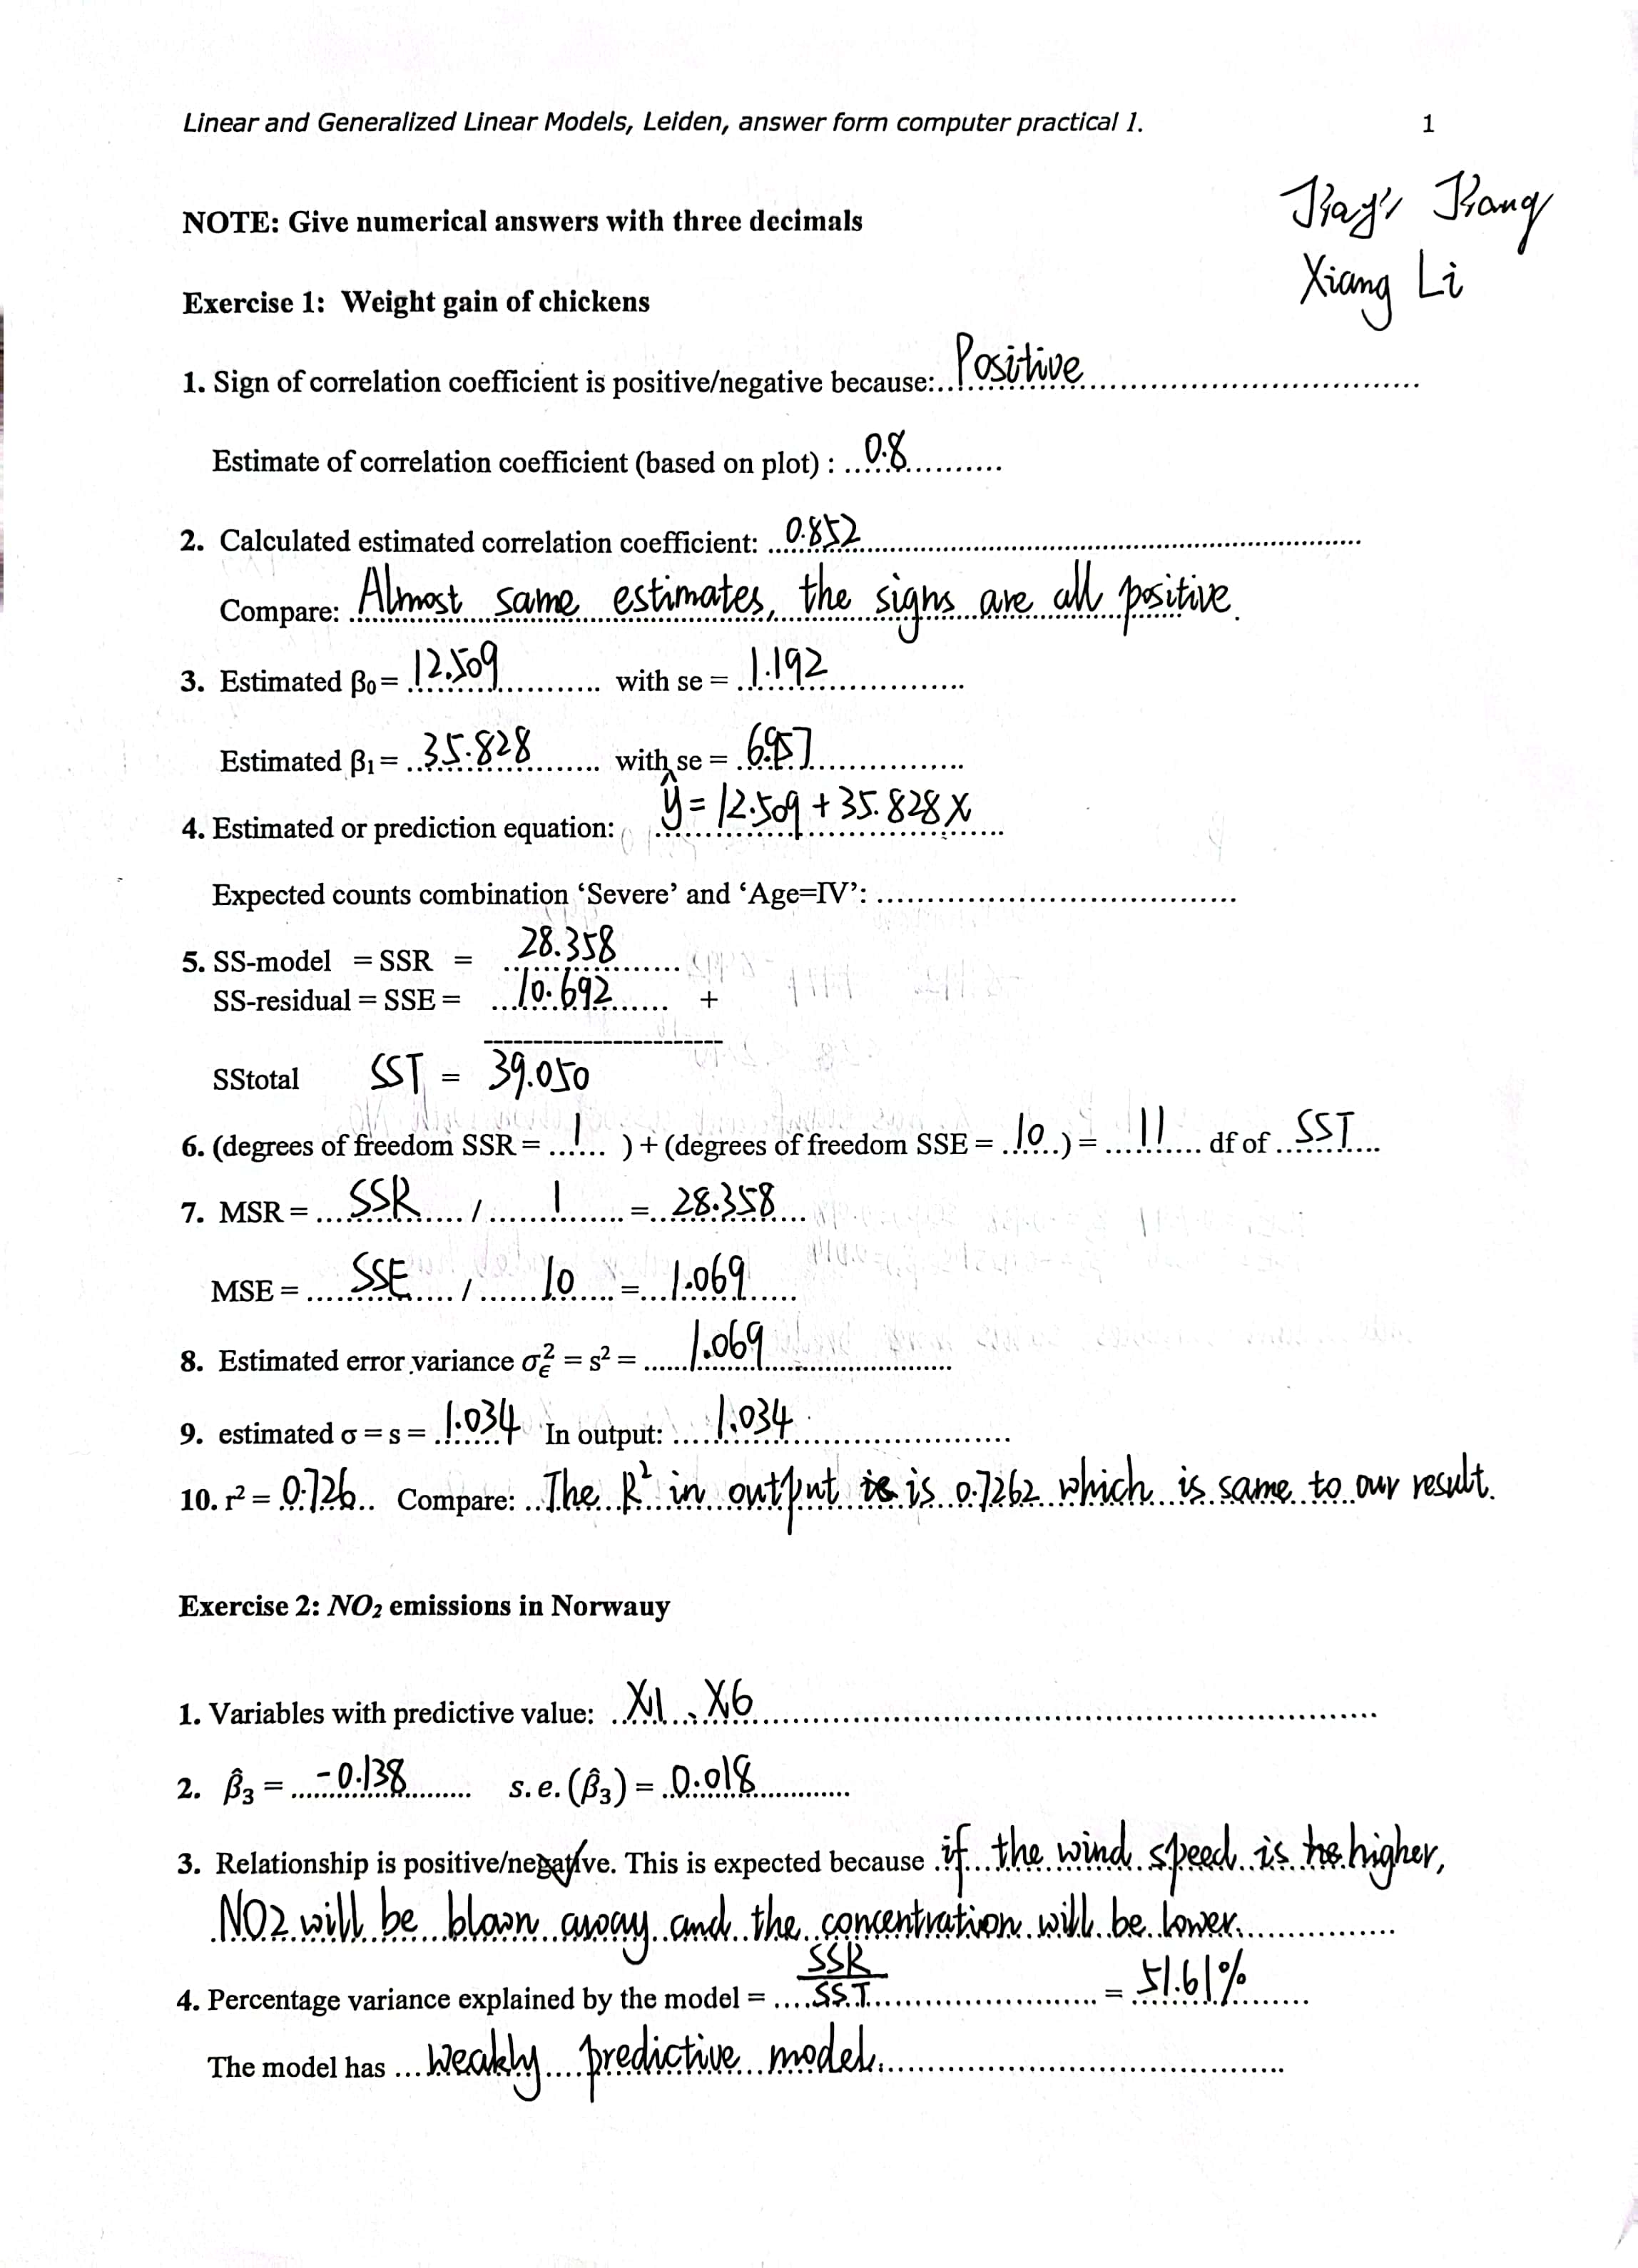 Linear and Generalized Linear Models, Leiden, answer form computer practical 1. 1
NOTE: Give numerical answers with three decimals
Xiang Li
Exercise 1: Weight gain of chickens
1. Sign of correlation coefficient is positive/negative because: Positive
Estimate of correlation coefficient (based on plot) : 0.8
2. Calculated estimated correlation coefficient: 0.852
Compare: Almost same estimates, the signs are all positive.
3. Estimated β0 = 12.509 with se = 1.192
Estimated β1 = 35.828 with se = 6.957
4. Estimated or prediction equation: ŷ = 12.509 + 35.828 x
Expected counts combination ‘Severe’ and ‘Age=IV’:
5. SS-model = SSR = 28.358
SS-residual = SSE = 10.692 +
SStotal SST = 39.050
6. (degrees of freedom SSR = 1 ) + (degrees of freedom SSE = 10 ) = 11 df of SST
7. MSR = SSR / 1 = 28.358
MSE = SSE / 10 = 1.069
8. Estimated error variance σ²ϵ = s² = 1.069
9. estimated σ = s = 1.034 In output: 1.034
10. r² = 0.726 Compare: The R² in output is is 0.7262 which is same to our result.
Exercise 2: NO2 emissions in Norwauy
1. Variables with predictive value: X1、X6
2. β̂3 = -0.138 s.e.(β̂3) = 0.018
3. Relationship is positive/negative. This is expected because if the wind speed is higher,
NO2 will be blown away and the concentration will be lower.
4. Percentage variance explained by the model = SSR/SST = 51.61%
The model has weakly predictive model.